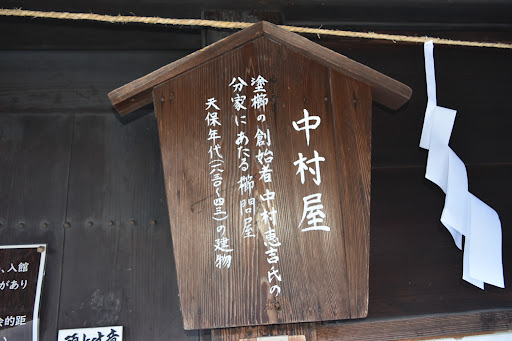 中村屋
塗櫛の創始者中村恵吉氏の
分家にあたる櫛問屋
天保年代(一八三〇〜四三)の建物
、入館
があり
会的距